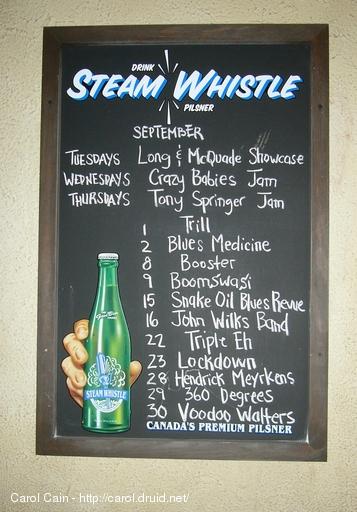 DRINK
STEAM WHISTLE
PILSNER
SEPTEMBER
TUESDAYS Long & McQuade Showcase
WEDNESDAYS Crazy Babies Jam
THURSDAYS Tony Springer Jam
1 Trill
2 Blues Medicine
8 Booster
9 Boomswasi
15 Snake Oil Blues Revue
16 John Wilks Band
22 Triple Eh
23 Lockdown
28 Hendrick Meyrkens
29 360 Degrees
30 Voodoo Walters
STEAM WHISTLE
CANADA'S PREMIUM PILSNER
Carol Cain - http://carol.druid.net/